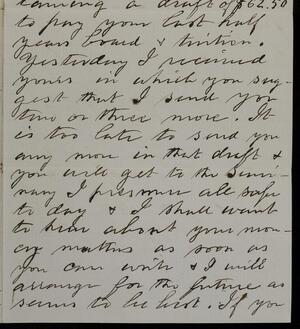 taining a draft of $62.50
to pay your last half
years board & tuition.
Yesterday I received
yours in which you sug-
gest that I send you
two or three more. It
is too late to send you
any more in that draft &
you will get to the Semi-
nary I presume all safe
to day & I shall want
to hear about your mon-
ey matters as soon as
you can write & I will
arrange for the future as
seems to be best. If you